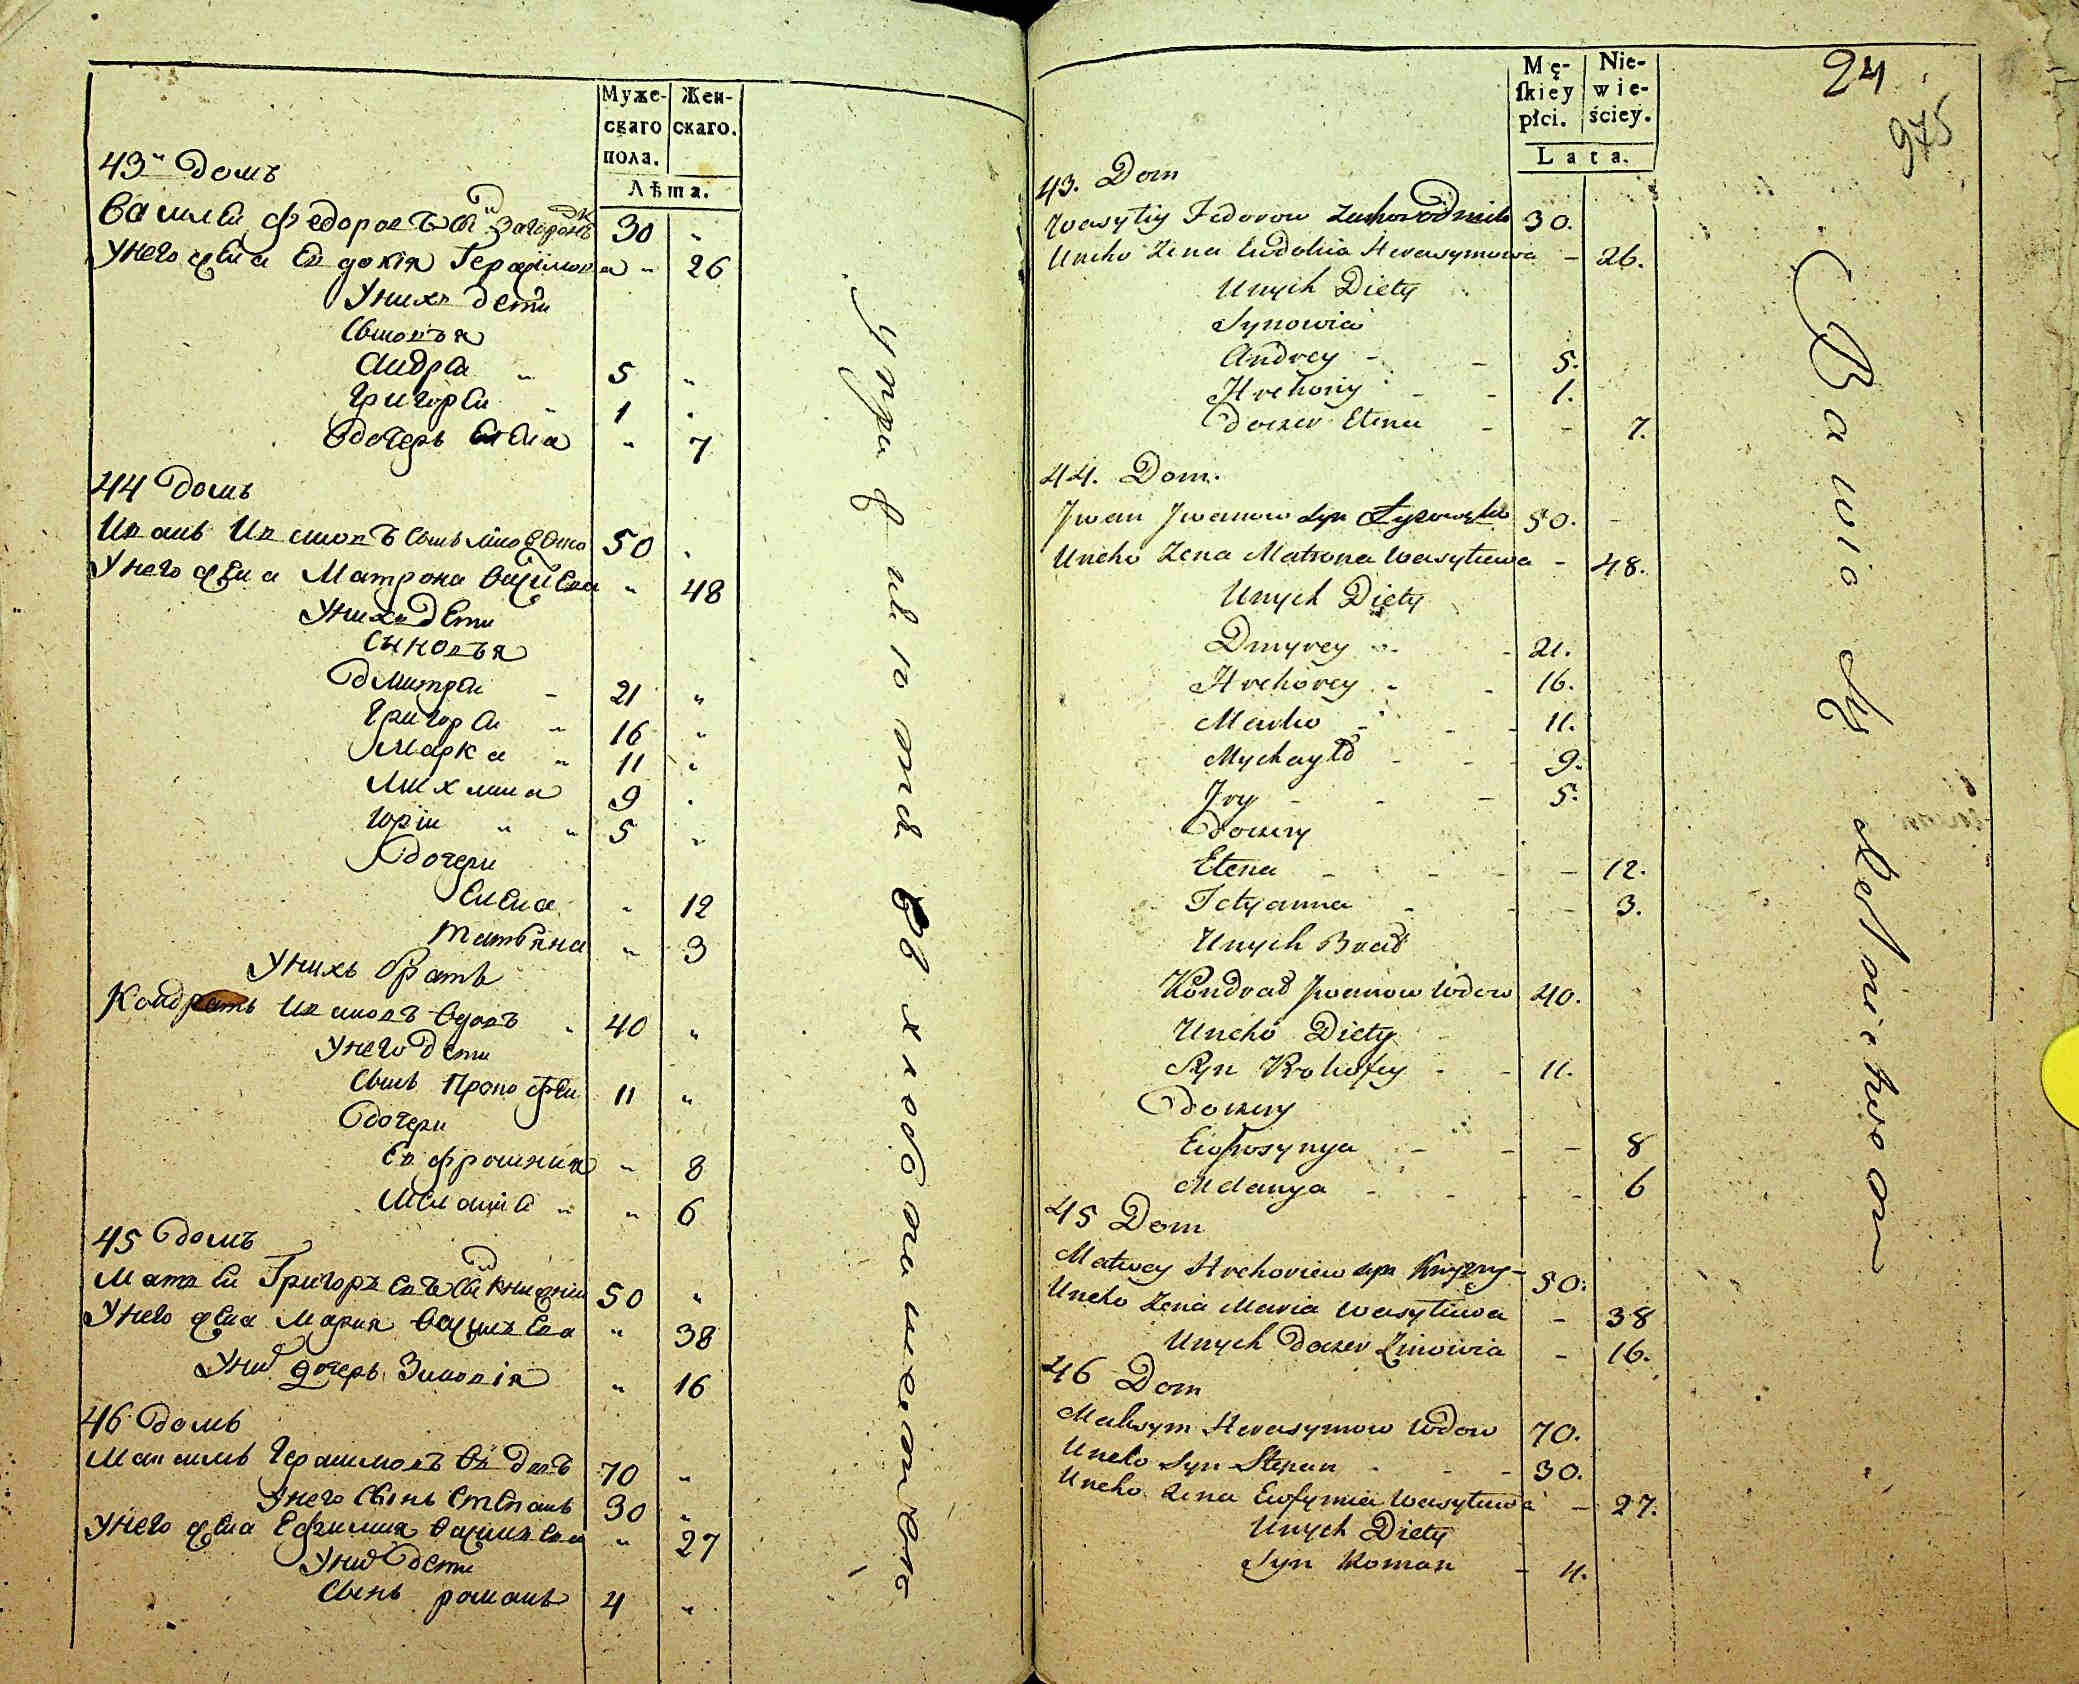 Муже-
скаго
пола.
Жен-
скаго.
Лѣта.
43й Домъ
Василей Федоровъ сй 30 "
У него жена Евдокия Герасимова " 26
У них дети
Сыновья
Андрей " 5 "
Григорей " 1 "
Дочерь Елена " 7
44 Домъ
Иванъ Ивановъ сынъ 50 "
У него жена Матрона Василева " 48
У них дети
Сыновья
Дмитрей - 21 "
Григорей " 16 "
Марко " 11 "
Михаила 9 "
Юрiи " " 5 "
Дочери
Елена " 12
Татьяна " 3
У нихъ братъ
Кондратъ Ивановъ вдовъ " 40 "
У него дети
Сынъ Прокофей 11 "
Дочери
Евфросиния " 8
Меланiя " " 6
45 Домъ
Матвей Григорьевъ сй 50 "
У него жена Мария Василева " 38
У них дочерь Зиновiя " 16
46 Домъ
Максимъ Герасимовъ вдовъ 70 "
У него сынъ Степанъ 30 "
У него жена Ефимия Василева " 27
У них дети
Сынъ романъ 4 "
Mę-
ſkiey
płci.
Nie-
wie-
ściey.
Lata.
24
975
43. Dom
Wasyliy Fedorow 30.
Uneho Zena Ewdokia Herasymowa - 26.
Unych Diety
Synowia
Andrey - - 5.
Hrehoriy - - 1.
Doczer Elena - - 7.
44. Dom.
Jwan Jwanow syn 50. -
Uneho Zena Matrona Wasylewa - 48.
Unych Diety
Dmyrey - - 21.
Hrehorey - - 16.
Marko - - - 11.
Mychayło - - - 9.
Jry - - - 5.
Doczery
Elena - - - - - 12.
Tetyanna - - - 3.
Unych Brat
Kondrad Jwanow Wdow 40.
Uneho Diety
Syn Prokofey - - 11.
Doczery
Eufrosynya - - - 8
Melanya - - - - 6
45 Dom
Matwey Hrehoriew syn 50.
Uneho Zena Maria Wasylewa - 38
Unych Doczer Zinowia - 16.
46 Dom
Maksym Herasymow Wdow 70.
Uneho Syn Stepan - - - 30.
Uneho Zena Eufymia Wasylewa - 27.
Unych Diety
Syn Roman - 4.